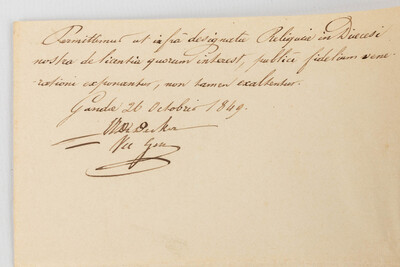 Permittimus ut infrà designatae Reliquiae in Dioecesi
nostra de licentiâ quorum interest, publicae fidelium vene-
rationi exponantur, non tamen exaltentur.
Gandae 26 Octobris 1849.
Vic Gen